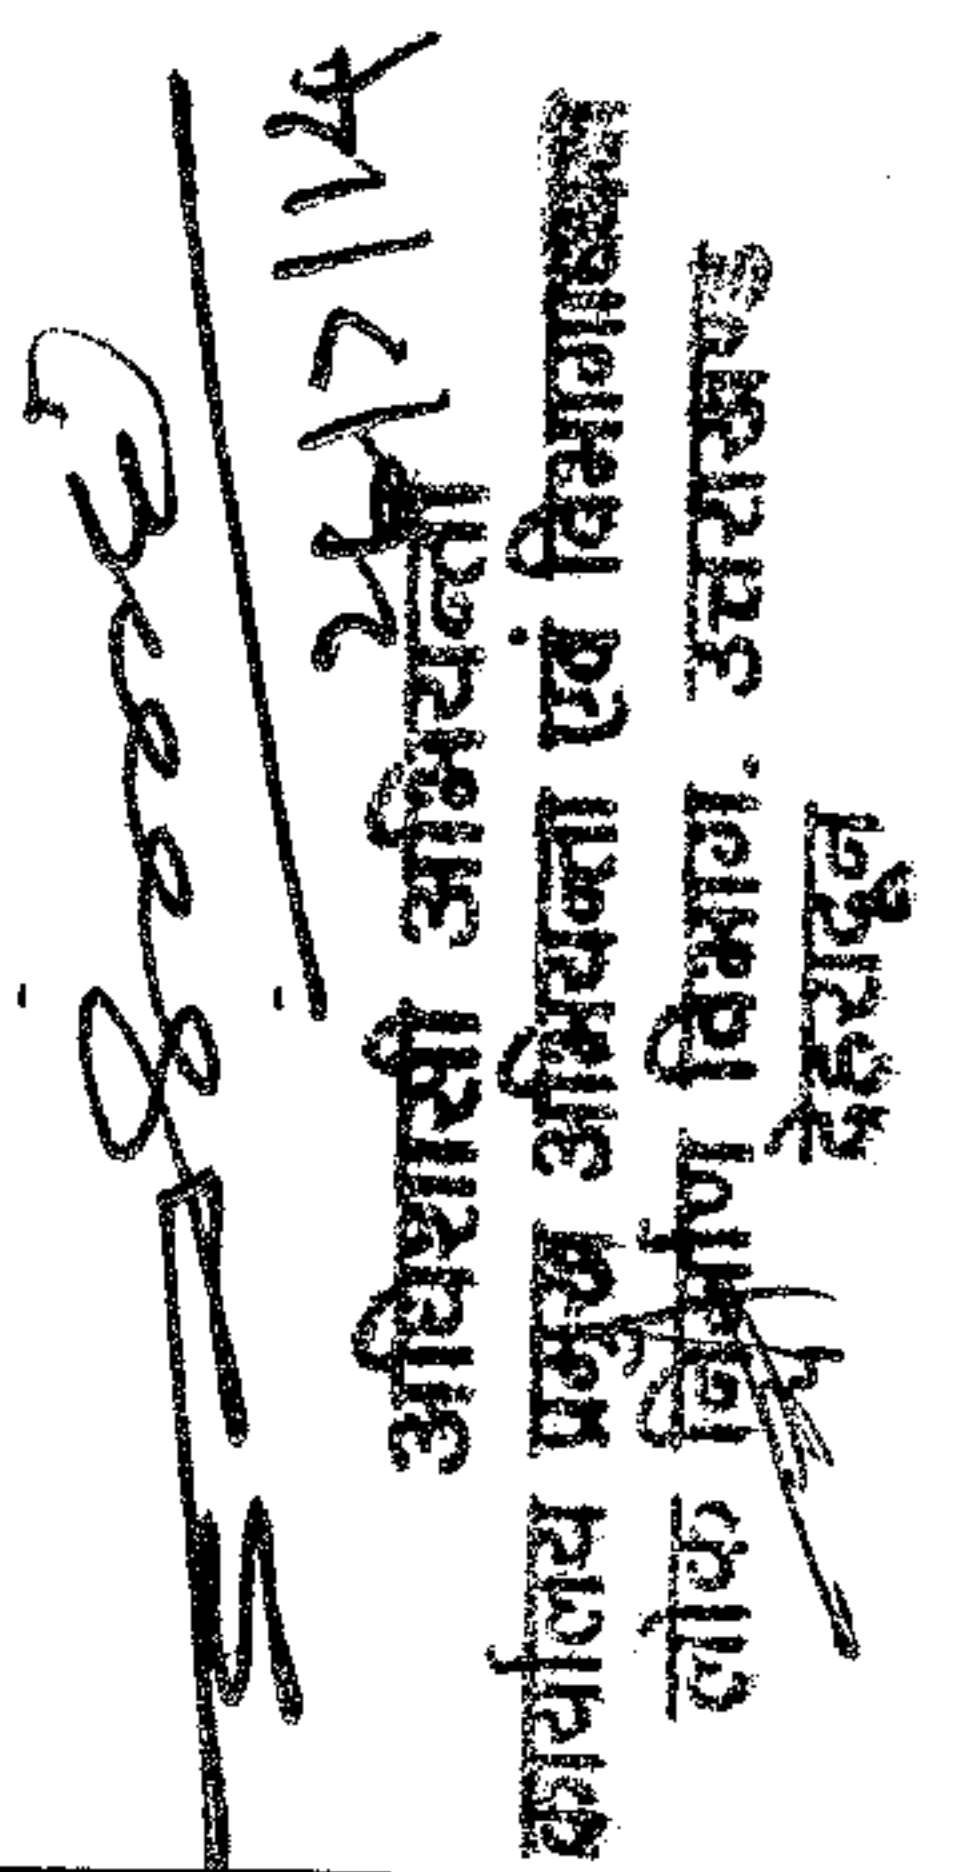 26/7/24
अधिशासी अभियन्ता
कार्यालय प्रमुख अभियन्ता एवं विभागाध्यक्ष
लोक निर्माण विभाग. उत्तराखण्ड
देहरादून